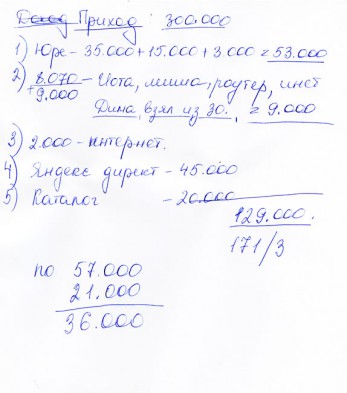 Доход Приход 300.000
1) Юре - 35.000 + 15.000 + 3.000 = 53.000
2) 8.070 - Инста, миша, роутер, инст
+ 9.000
Дима взял из 30. = 9.000
3) 2.000 - интернет.
4) Яндекс директ - 45.000
5) Каталог - 20.000
129.000.
171/3
по 57.000
21.000
36.000